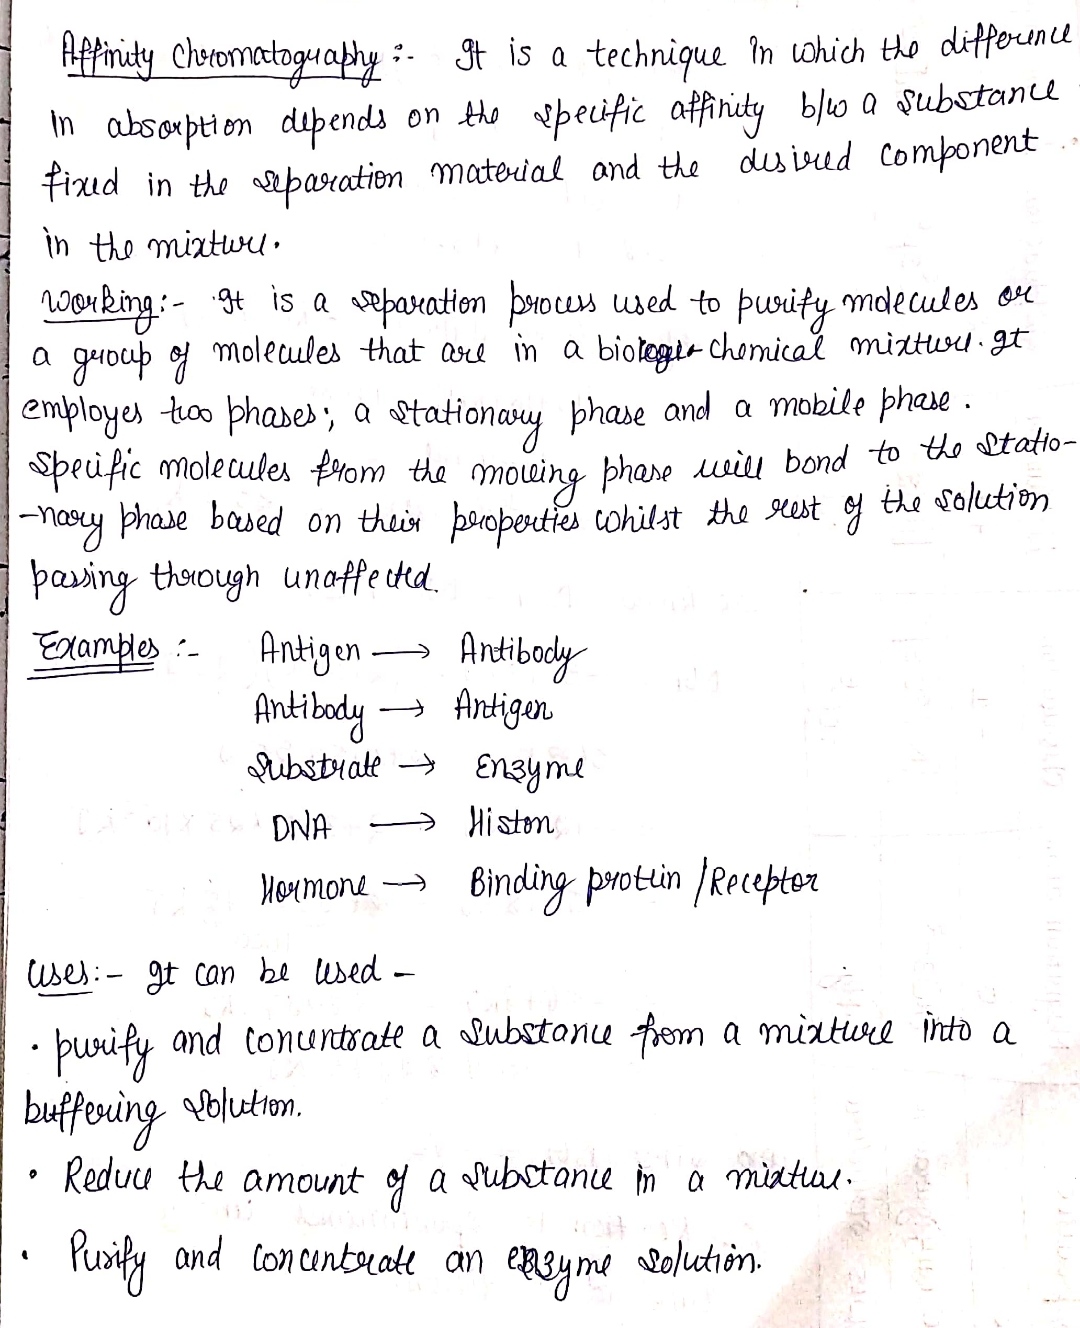 Affinity Chromatography :- It is a technique in which the difference
in absorption depends on the specific affinity b/w a substance
fixed in the separation material and the desired component
in the mixture.
Working :- It is a separation process used to purify molecules or
a group of molecules that are in a biochemical mixture. It
employes two phases; a stationary phase and a mobile phase.
Specific molecules from the moving phase will bond to the statio-
-nary phase based on their properties whilst the rest of the solution
passing through unaffected.
Examples :- Antigen → Antibody
Antibody → Antigen
Substrate → Enzyme
DNA → Histon
Hormone → Binding protein / Receptor
Uses :- It can be used -
• purify and concentrate a substance from a mixture into a
buffering solution.
• Reduce the amount of a substance in a mixture.
• Purify and concentrate an enzyme solution.